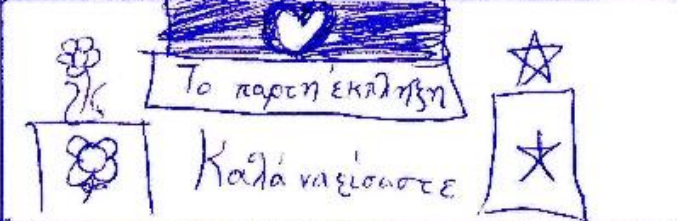 Το παρτη έκπληξη
Καλά να είσαστε